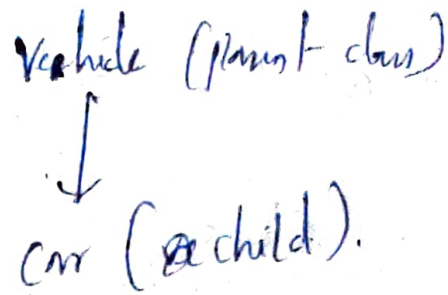 Vehicle (parent class)
car (child).